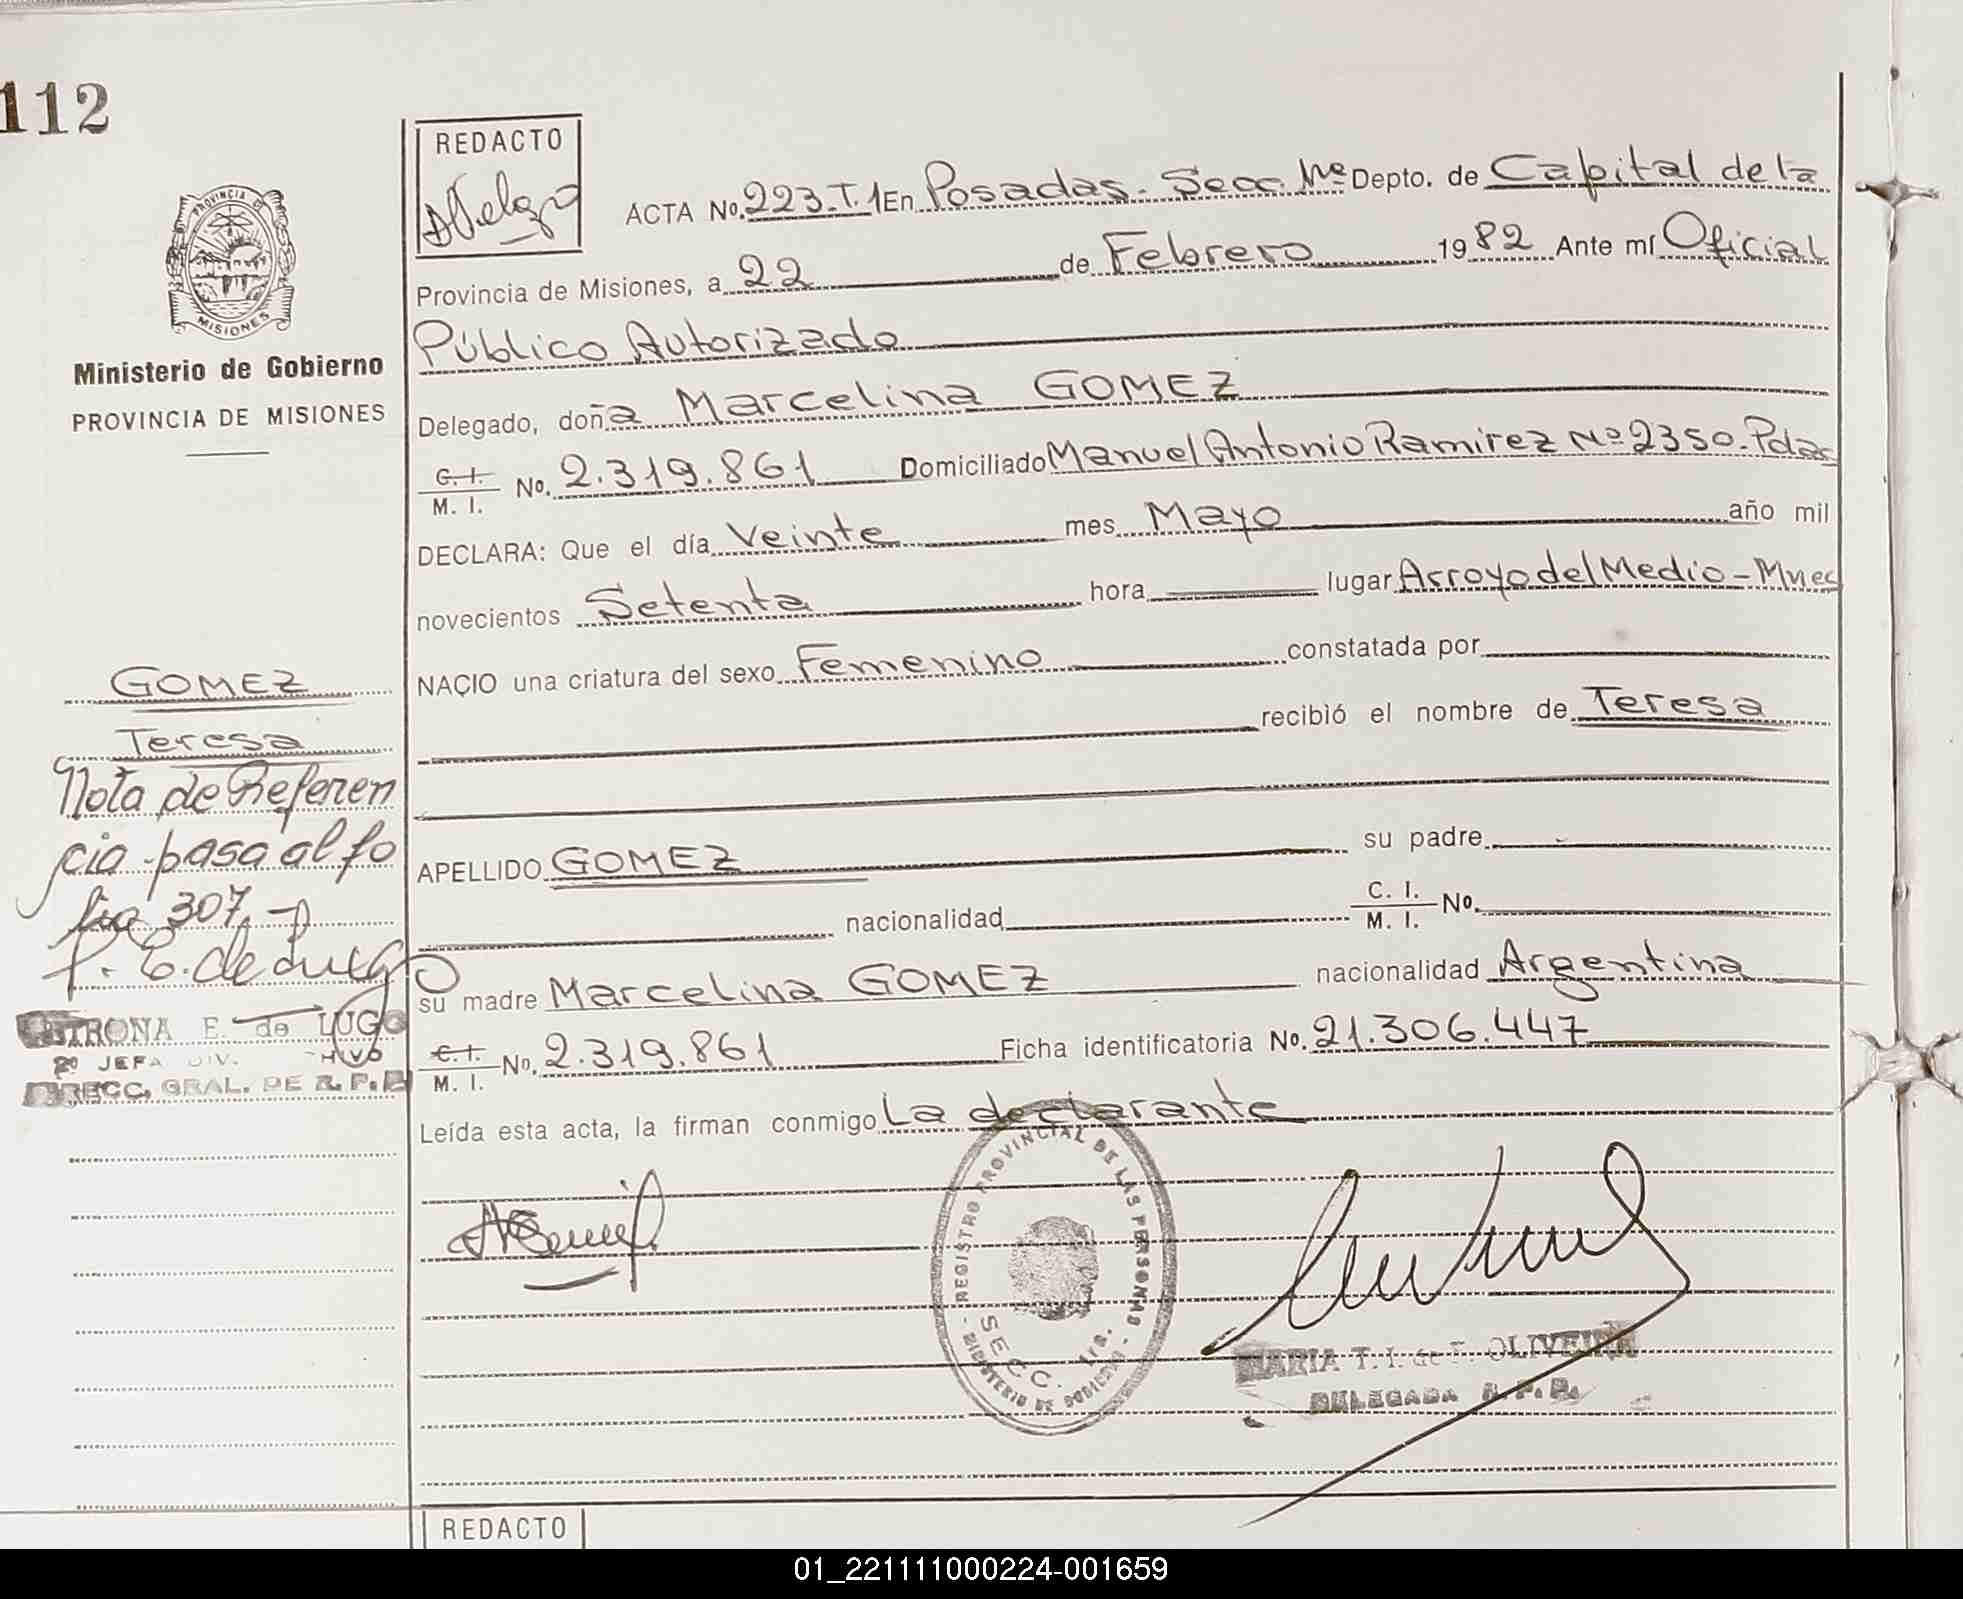 112
REDACTO
ACTA No. 223-T.1 En Posadas. Secc. Nº Depto. de Capital de la
Provincia de Misiones, a 22 de Febrero 1982 Ante mí Oficial
Público Autorizado
PROVINCIA DE
MISIONES
Ministerio de Gobierno
PROVINCIA DE MISIONES
Delegado, doña Marcelina GOMEZ
C. I. / M. I. No. 2.319.861 Domiciliado Manuel Antonio Ramirez Nº 2350. Pdas
DECLARA: Que el día Veinte mes Mayo año mil
novecientos Setenta hora lugar Arroyo del Medio - Mnes
NACIO una criatura del sexo Femenino constatada por
recibió el nombre de Teresa
APELLIDO GOMEZ su padre
nacionalidad C. I. / M. I. No.
su madre Marcelina GOMEZ nacionalidad Argentina
C. I. / M. I. No. 2.319.861 Ficha identificatoria No. 21.306.447
Leída esta acta, la firman conmigo La declarante
GOMEZ
Teresa
Nota de Referen
cia pasa al fo
lio 307.
P. E. de Lugo
E. de LUGO
2º JEFA DIV.
DIRECC. GRAL. DE R. P. P.
REGISTRO PROVINCIAL DE LAS PERSONAS
SECC. 1ra.
MINISTERIO DE
MARIA T. I. de F. OLIVEIRA
DELEGADA R. P. P.
REDACTO
01_221111000224-001659